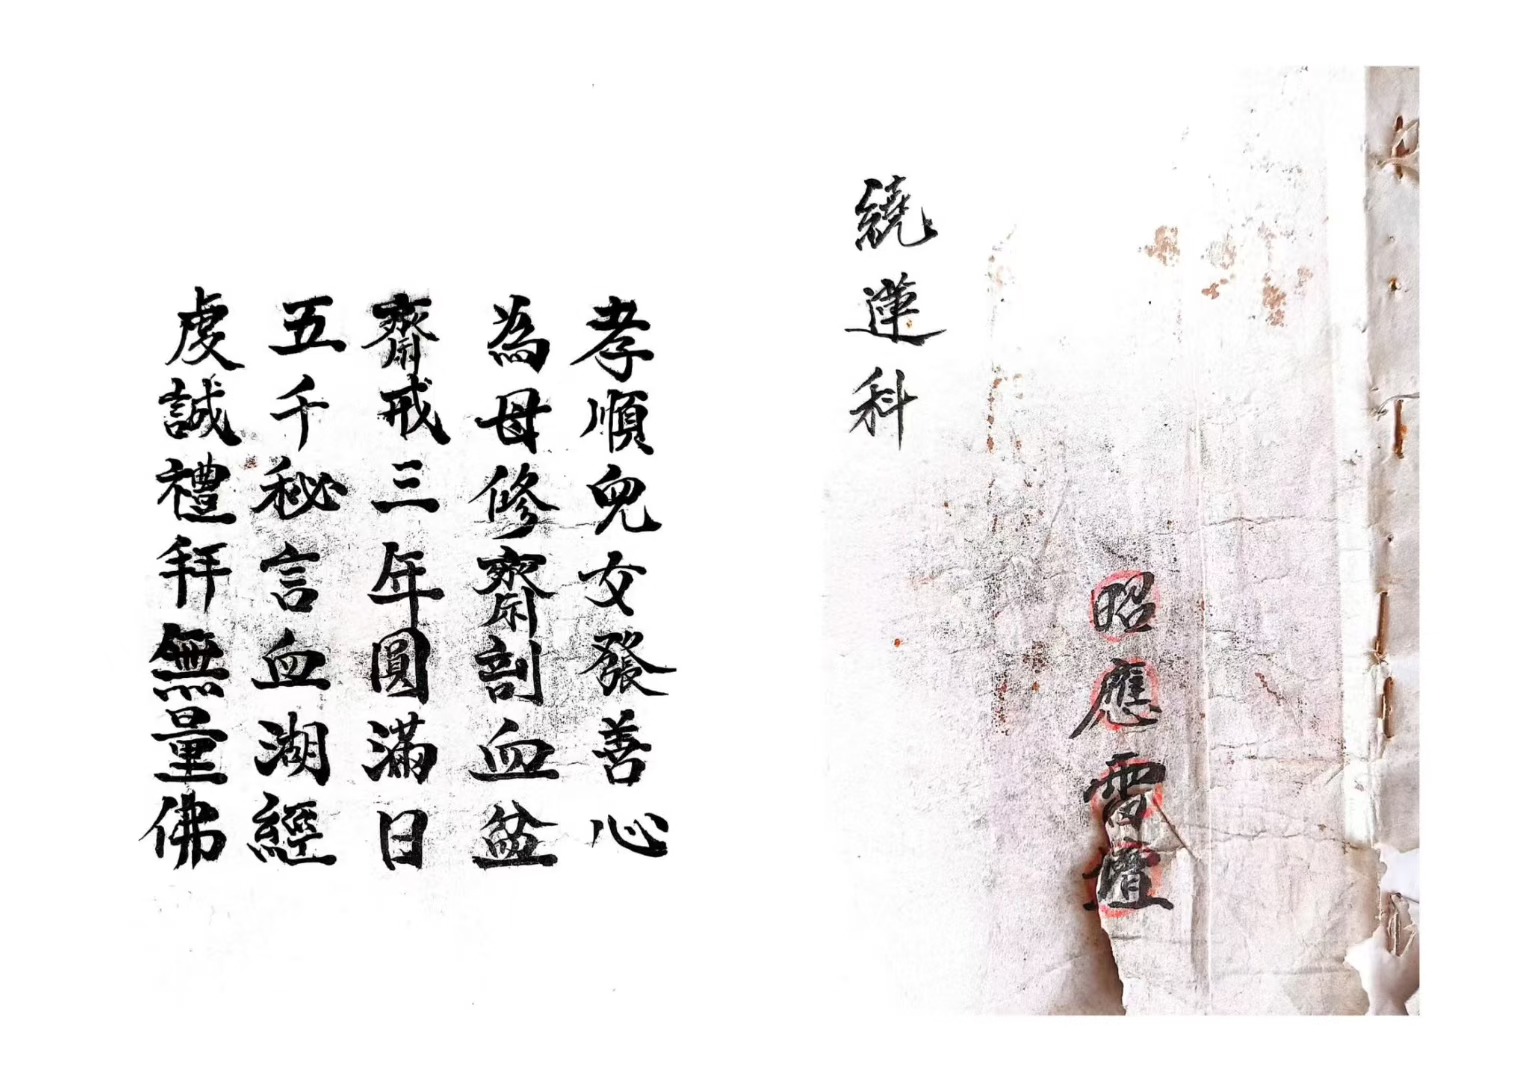 昭應雷壇
繞蓮科
孝順兒女發善心
為母修齋剖血盆
齋戒三年圓滿日
五千秘言血湖經
虔誠禮拜無量佛